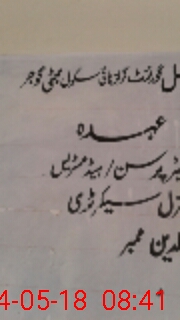 گورنمنٹ گرلز ہائی سکول بھٹی گوجر
عہدہ
پرسن / ہیڈ مسٹریس
سیکرٹری
ممبر
4-05-18 08:41